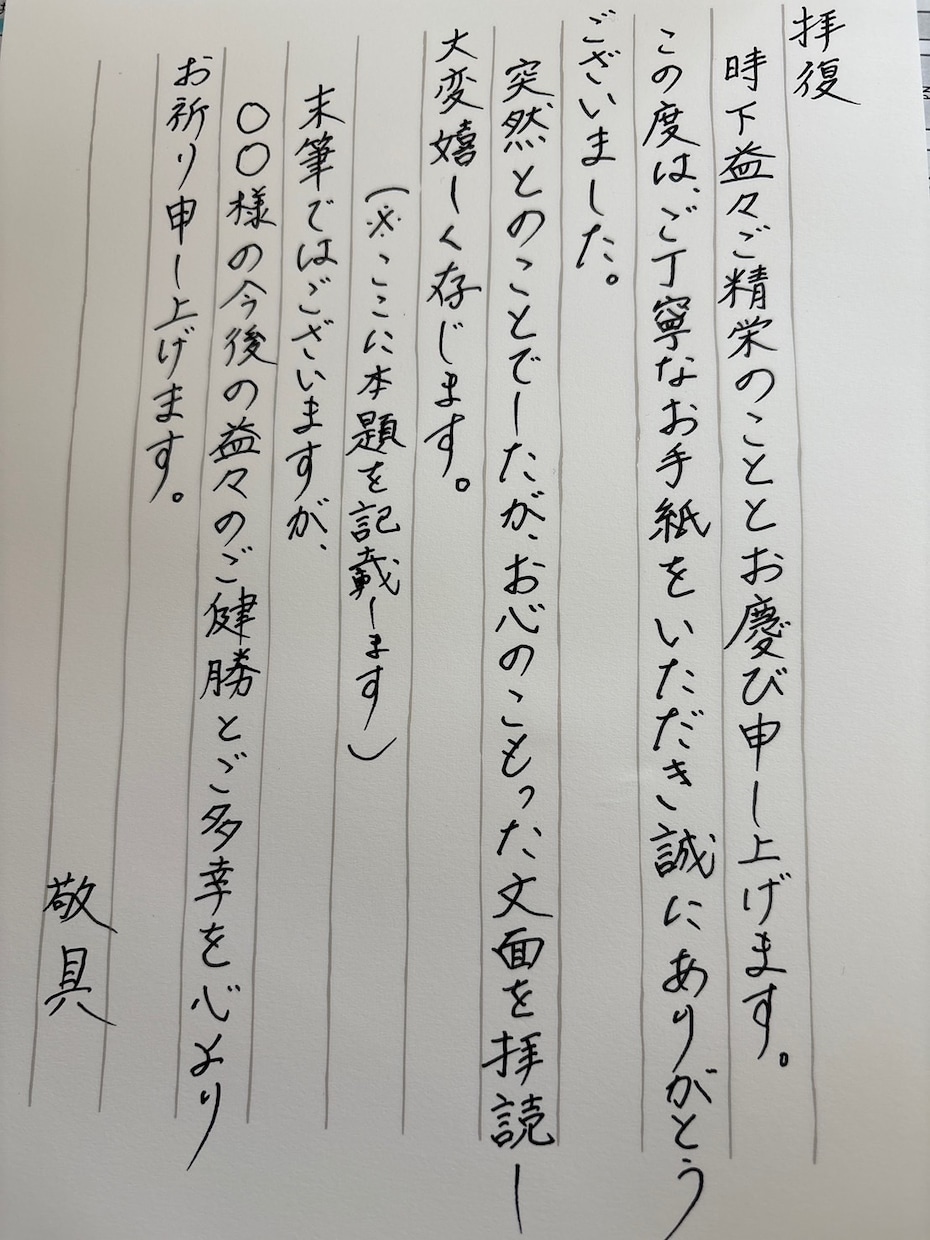 拝復
時下益々ご精栄のこととお慶び申し上げます。
この度は、ご丁寧なお手紙をいただき誠にありがとう
ございました。
突然とのことでしたが、お心のこもった文面を拝読し
大変嬉しく存じます。
(※ここに本題を記載します)
末筆ではございますが、
〇〇様の今後の益々のご健勝とご多幸を心より
お祈り申し上げます。
敬具